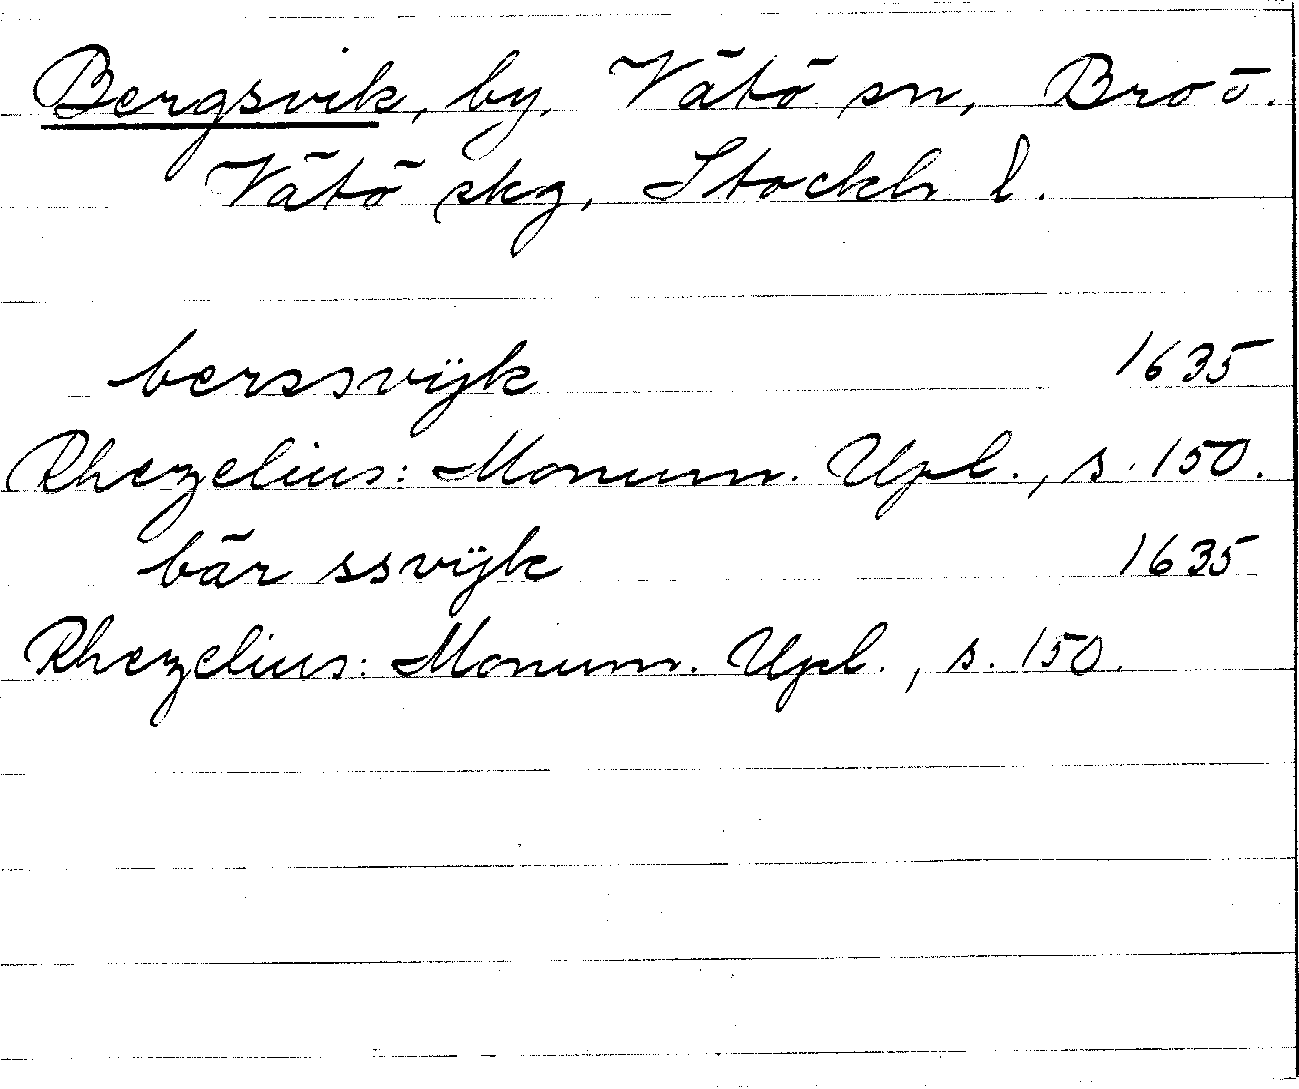 Bergsvik, by, Vätö sn, Bro o.
Vätö skg, Stockh l.
berssvÿk 1635
Rhezelius: Monum. Upl., s. 150.
bär ssvÿk 1635
Rhezelius: Monum. Upl., s. 150.